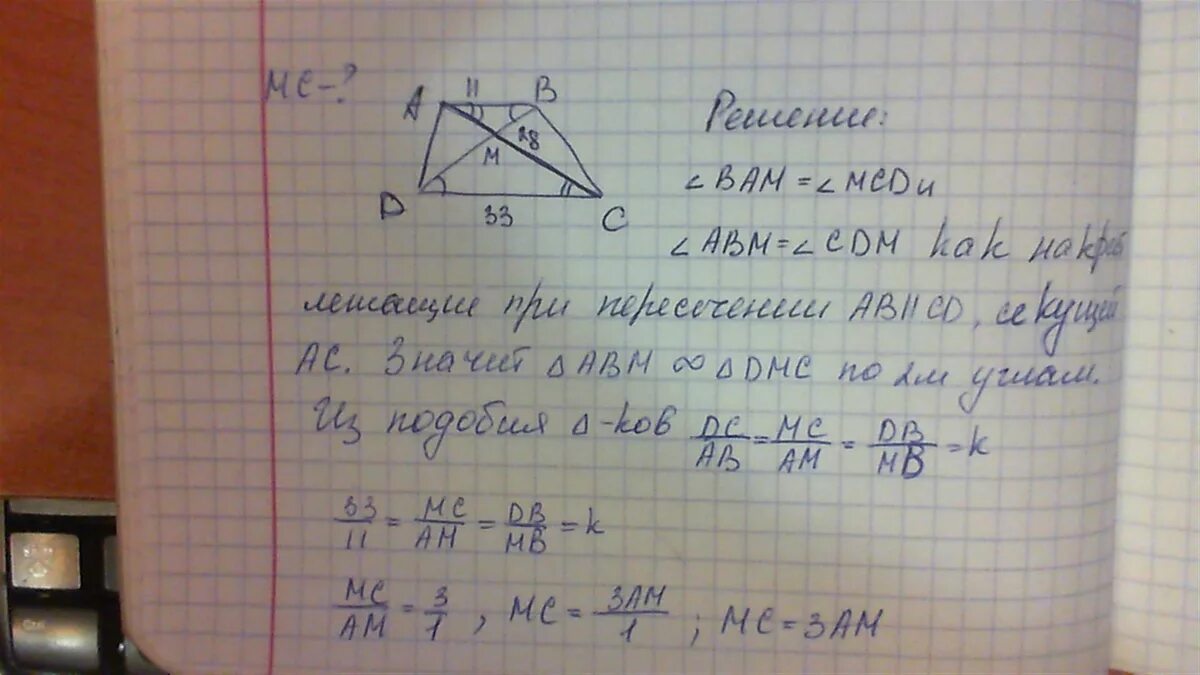 МС-?
11
A
B
28
M
D
C
33
Решение:
∠BAM=∠MCD и
∠ABM=∠CDM как накрест
лежащие при пересечении AB||CD, секущей
AC. Значит △ABM ∞ △DMC по 2м углам.
Из подобия △-ков DC/AB = MC/AM = DB/MB = k
33/11 = MC/AM = DB/MB = k
MC/AM = 3/1 , MC = 3AM/1 ; MC = 3AM